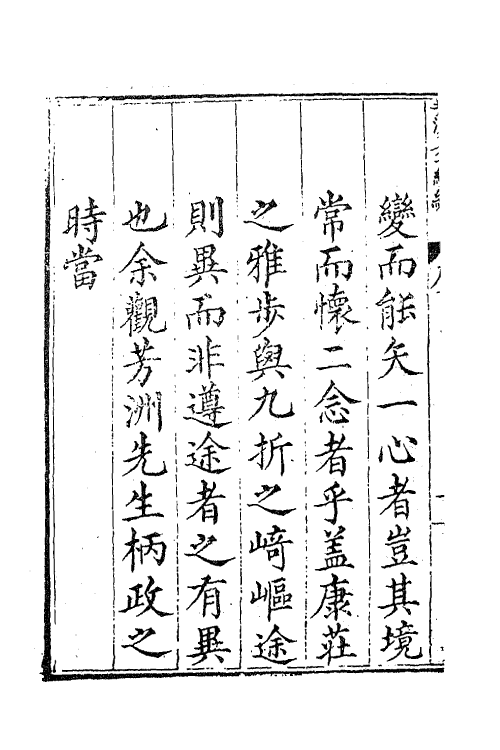 變而能矢一心者豈其境
常而懷二念者乎盖康莊
之雅步與九折之崎嶇途
則異而非遵途者之有異
也余觀芳洲先生柄政之
時當